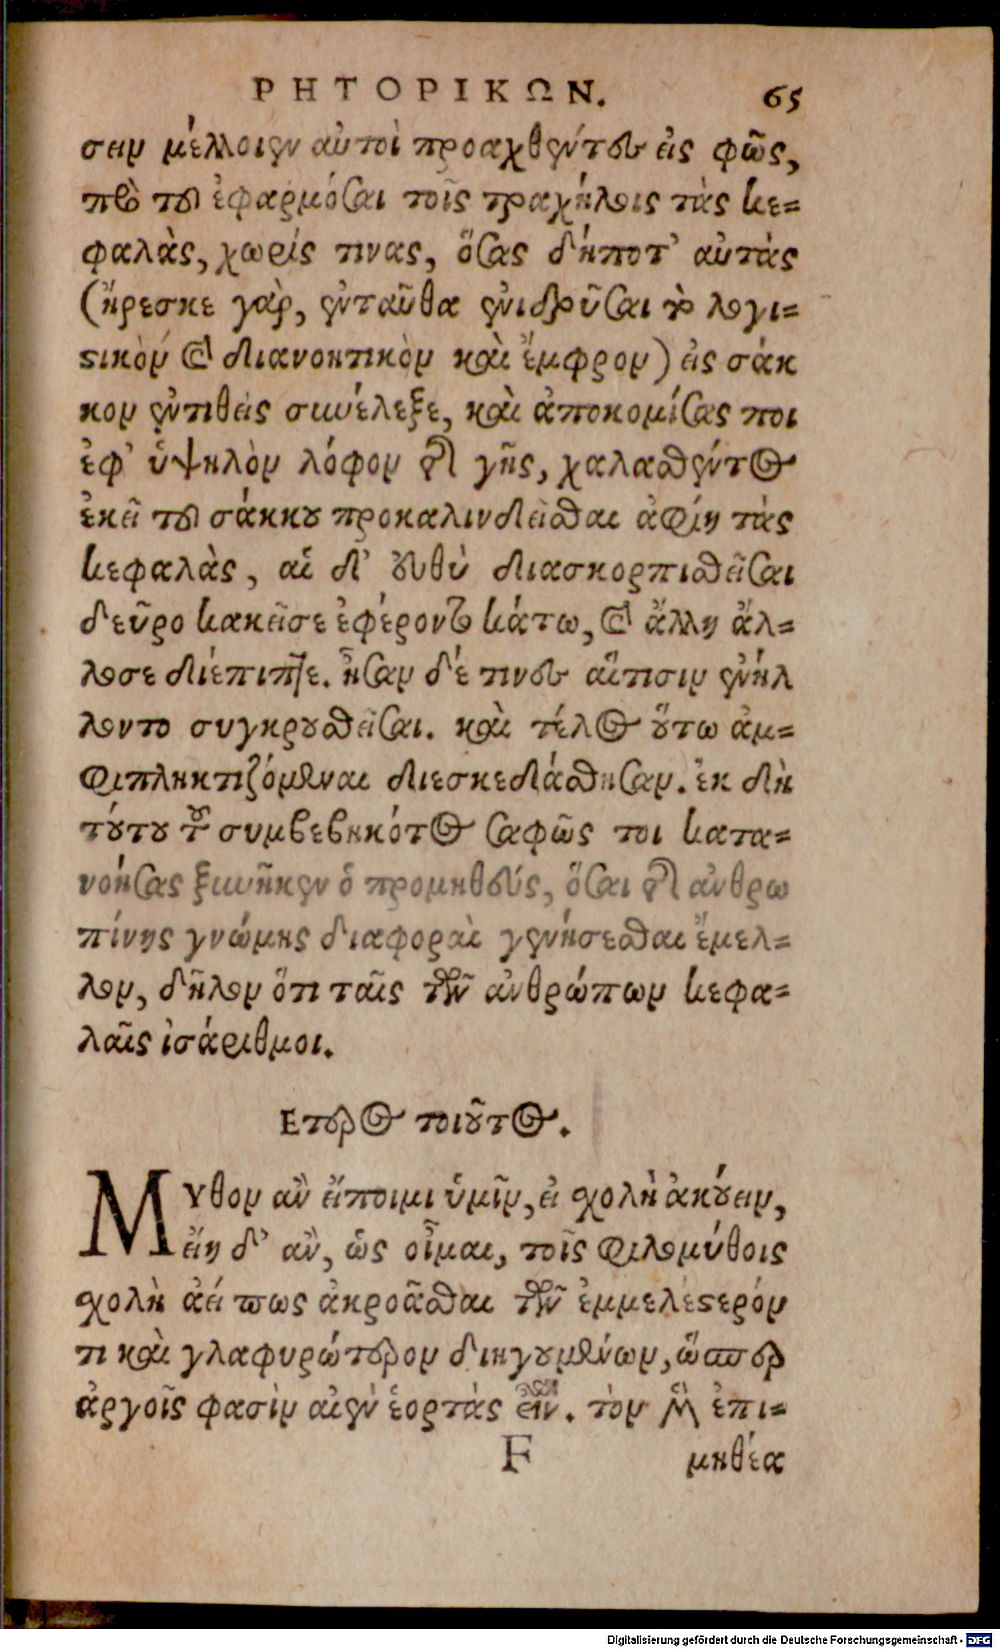 ΡΗΤΟΡΙΚΩΝ. 65
σειν μέλλοιεν αὐτοὶ προαχθέντες εἰς φῶς,
πρὸ τοῦ ἐφαρμόσαι τοῖς τραχήλοις τὰς κε-
φαλὰς, χωρίς τινας, ὅσας δήποτ' αὐτὰς
(ἤρεσκε γὰρ, ἐνταῦθα ἐνιδρῦσαι τὸ λογι-
στικὸν καὶ διανοητικὸν καὶ ἔμφρον) εἰς σάκ
κον ἐντιθεὶς συνέλεξε, καὶ ἀποκομίσας ποι
ἐφ' ὑψηλὸν λόφον τῆς γῆς, χαλασθέντος
ἐκεῖ τοῦ σάκκου προκαλινδεῖσθαι ἀφίη τὰς
κεφαλὰς, αἱ δ' εὐθὺ διασκορπισθεῖσαι
δεῦρο κακεῖσε ἐφέροντο κάτω, καὶ ἄλλη ἄλ-
λοσε διέπιπτε. ἦσαν δέ τινες αἵτισιν ἐνήλ
λοντο συγκρουσθεῖσαι. καὶ τέλος οὕτω ἀμ-
φιπληκτιζόμεναι διεσκεδάσθησαν. ἐκ δὴ
τούτου τοῦ συμβεβηκότος σαφῶς τοι κατα-
νοήσας ξυνῆκεν ὁ προμηθεύς, ὅσαι τῆς ἀνθρω
πίνης γνώμης διαφοραὶ γενήσεσθαι ἔμελ-
λον, δῆλον ὅτι ταῖς τῶν ἀνθρώπων κεφα-
λαῖς ἰσάριθμοι.
Ετερος τοιοῦτος.
ΜΥθον ἂν εἴποιμι ὑμῖν, εἰ σχολὴ ἀκούειν,
εἴη δ' ἂν, ὡς οἶμαι, τοῖς φιλομύθοις
σχολὴ ἀεί πως ἀκροᾶσθαι τῶν ἐμμελέστερόν
τι καὶ γλαφυρώτερον διηγουμένων, ὥσπερ
ἀργοῖς φασὶν αἰὲν ἑορτὰς εἶναι. τὸν μὲν ἐπι-
F μηθέα
Digitalisierung gefördert durch die Deutsche Forschungsgemeinschaft - DFG